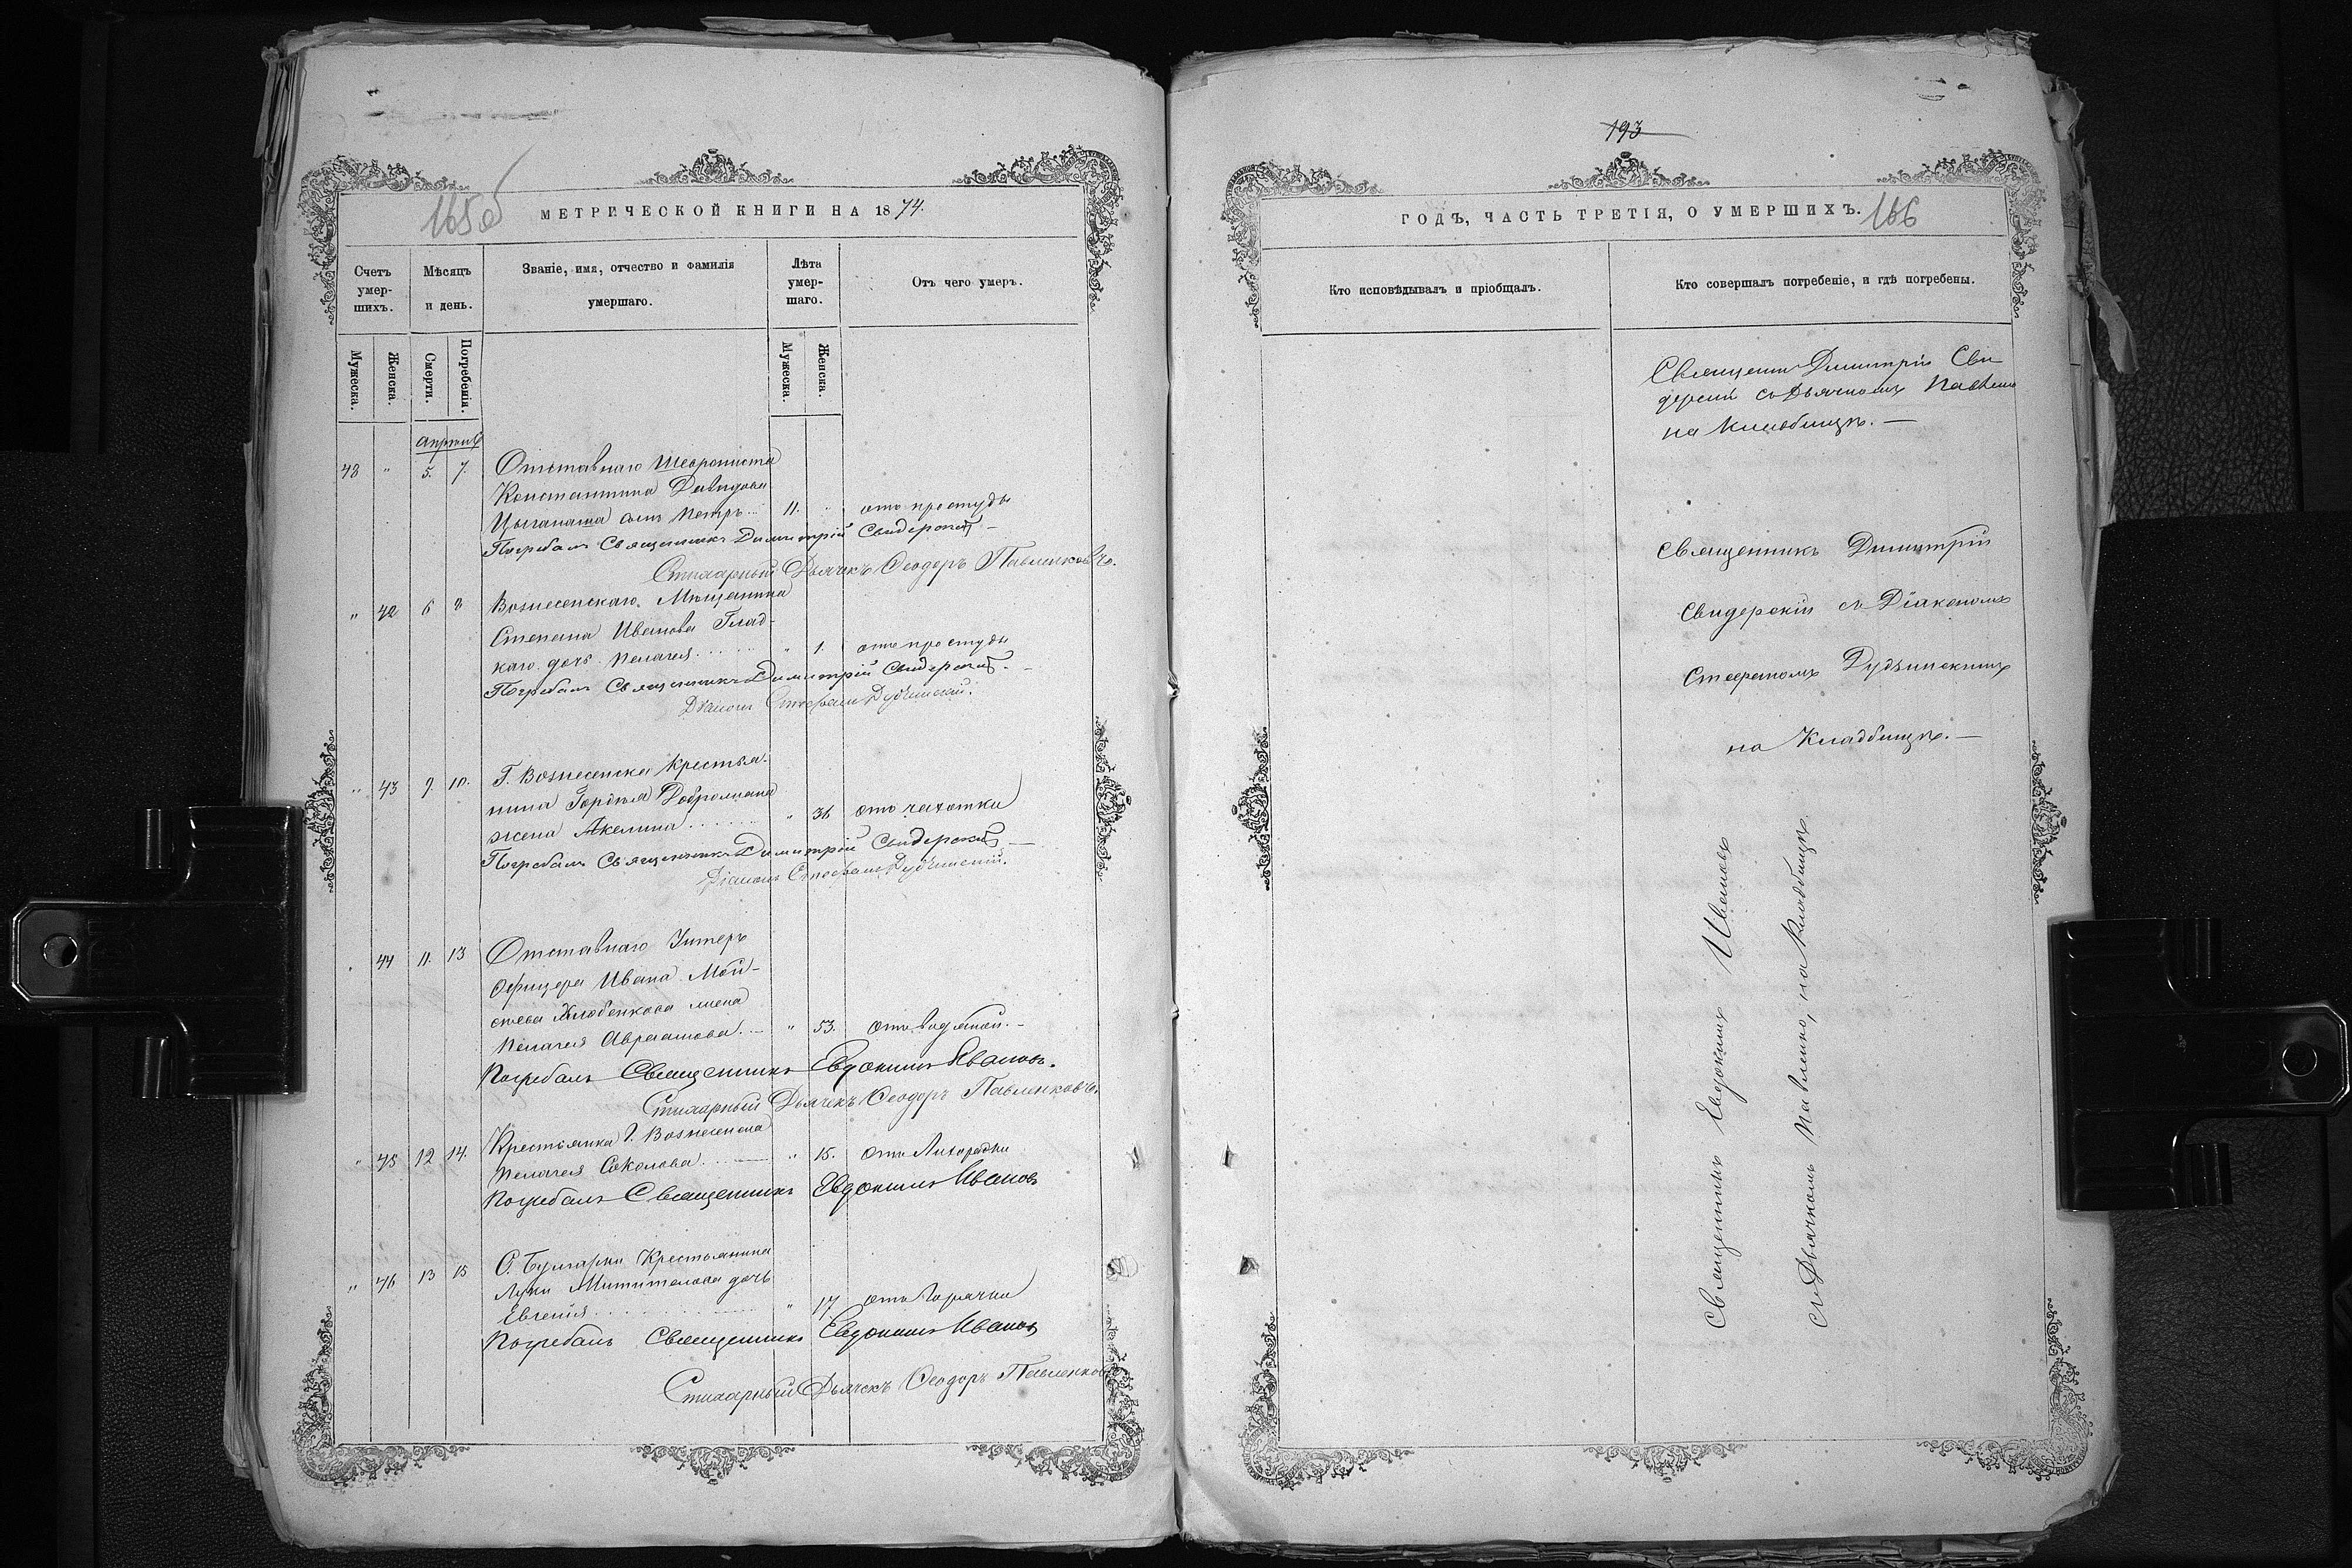 165об
МЕТРИЧЕСКОЙ КНИГИ НА 1874.
Счетъ умер-шихъ.
Мѣсяцъ и день.
Званіе, имя, отчество и фамилія умершаго.
Лѣта умер-шаго.
Отъ чего умеръ.
Мужеска.
Женска.
Смерти.
Погребенія.
Мужеска.
Женска.
48 " 5. 7. Отставнаго
Константина Давидова
сынъ Петръ 11. " отъ простуды
Погребалъ Священникъ Димитрій Свидерскій
Стихарный Дьячекъ Ѳеодоръ Павленковъ.
" 42 6 8 Вознесенскаго Мѣщанина
Степана Иванова Глад-
каго дочь Пелагея " 1. отъ простуды
Погребалъ Священникъ Димитрій Свидерскій.
Діаконъ Стефанъ Дубчинскій.
" 43 9. 10. Г. Вознесенска Крестья-
нина Гордѣя
жена Акелина " 36 отъ чахотки
Погребалъ Священникъ Димитрій Свидерскій
Діаконъ Стефанъ
" 44 11. 13 Отставнаго Унтеръ
Офицера Ивана Мои-
сѣева жена
Пелагея Авраамова. " 53. отъ водяной.
Погребалъ Священникъ Евдокимъ Ивановъ.
Стихарный Дьячекъ Ѳеодоръ Павленковъ.
" 45 12 14. Крестьянка Г. Вознесенска
Пелагея Соколова " 15. отъ Лихорадки
Погребалъ Священникъ Евдокимъ Ивановъ
" 46 13 15 С. Булгарки Крестьянина
Луки дочь
Евгенія " 17 отъ Горячки
Погребалъ Священникъ Евдокимъ Ивановъ
Стихарный Дьячекъ Ѳеодоръ Павленковъ
193
ГОДЪ, ЧАСТЬ ТРЕТІЯ, О УМЕРШИХЪ.
166
Кто исповѣдывалъ и пріобщалъ.
Кто совершалъ погребеніе, и гдѣ погребены.
Священни Димитрій Сви-
дерскій съ Дьячкомъ
на Кладбищѣ. —
Священникъ Димитрій
Свидерскій съ Діакономъ
Стефаномъ
на Кладбищѣ. —
Священникъ Евдокимъ Ивановъ
съ Дьячкомъ Павленко, на Кладбищѣ.